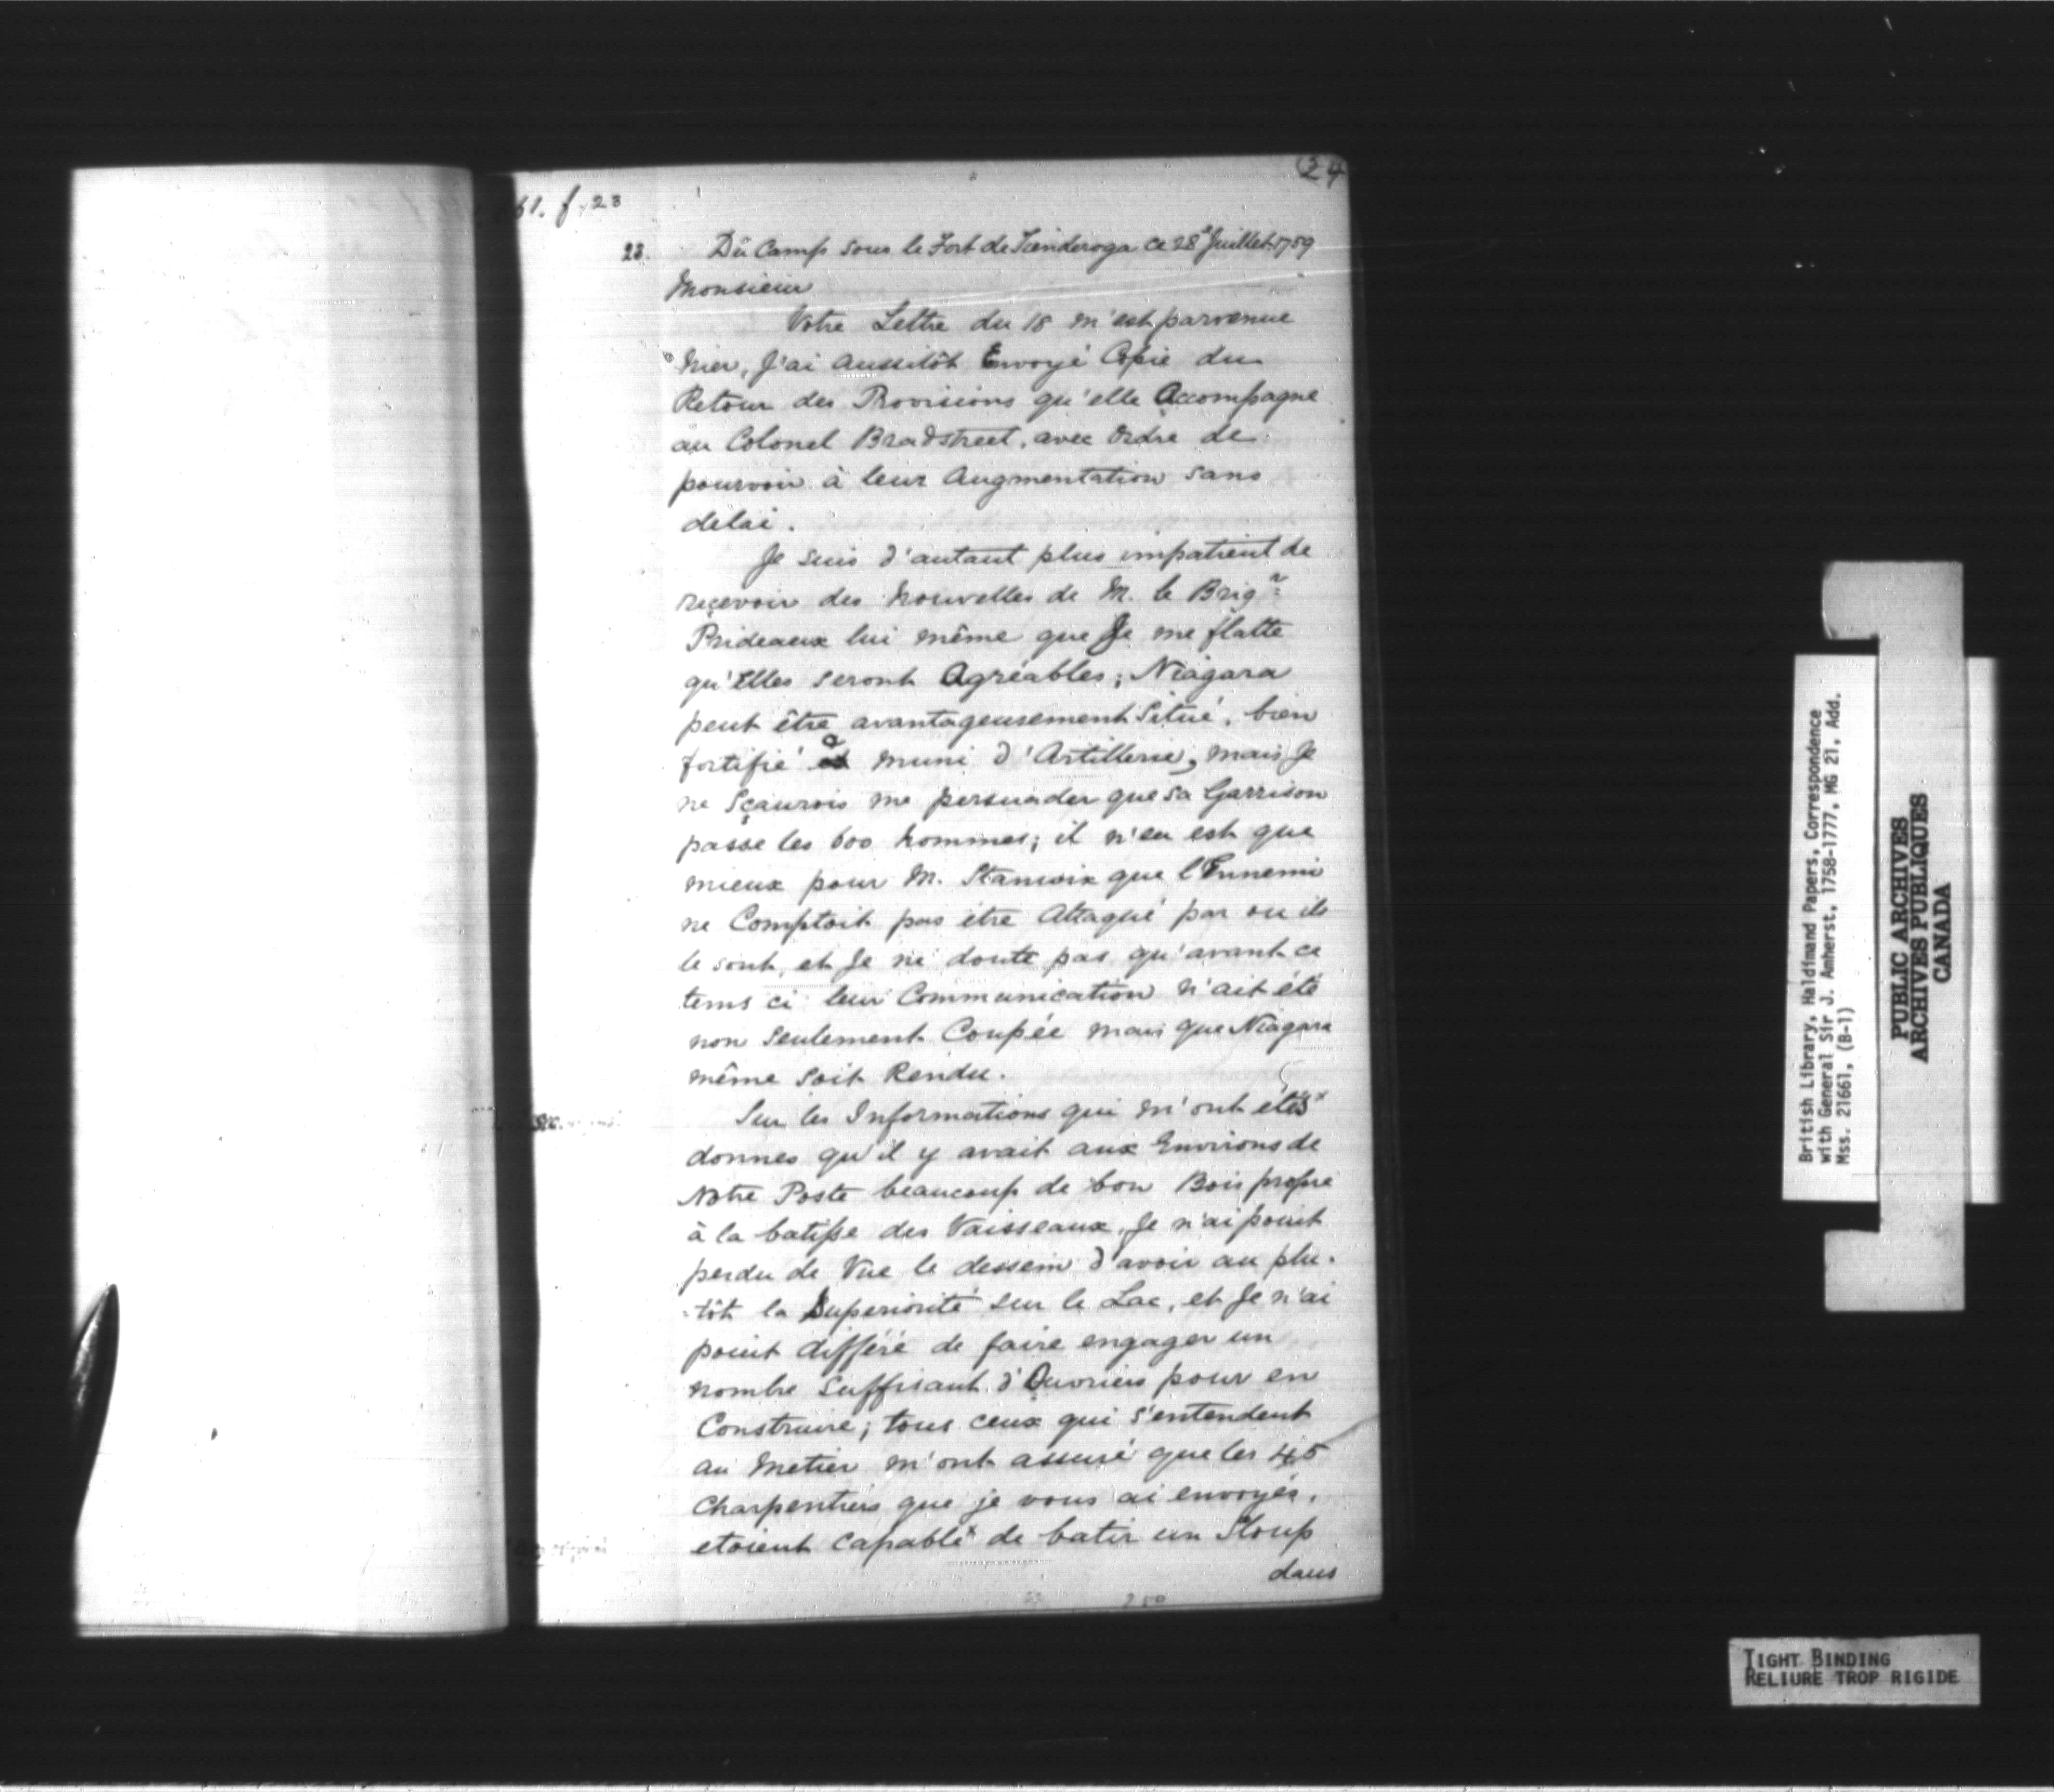 24
61. f. 23
23. Dü Camp sous le Fort de Tienderoga ce 28e Juillet 1759
Monsieur
Votre Lettre du 18 m'est parvenue
hier, J'ai aussitôt Envoyé Copie du
Retour des Provisions qu'elle Accompagne
au Colonel Bradstreet, avec Ordre de
pourvoir à leur Augmentation sans
delai.
Je suis d'autant plus impatient de
reçevoir des Nouvelles de M. le Brigr
Prideaux lui même que Je me flatte
qu'Elles seront Agréables; Niagara
peut être avantageusement Situé, bien
fortifié & muni d'Artillerie, mais Je
ne Sçaurois me persuader que sa Garrison
passe les 600 hommes; il n'en est que
mieux pour M. Stanwix que l'Ennemi
ne Comptoit pas être Attaqué par ou ils
le sont, et Je ne doute pas qu'avant ce
tems ci leur Communication n'ait été
non Seulement Coupée mais que Niagara
même soit Rendu.
Sur les Informations qui m'ont étésx
donnes qu'il y avait aux Environs de
Notre Poste beaucoup de bon Bois propre
à la batisse des Vaisseaux, Je n'ai point
perdu de Vue le dessein d'avoir au plu-
-tôt la Superiorité sur le Lac, et Je n'ai
point différé de faire engager un
nombre Suffisant d'Ouvriers pour en
Construire; tous ceux qui s'entendent
au Metier m'ont assuré que les 45
Charpentiers que je vous ai envoyés,
etoient capablex de batir un Sloup
dans
250
British Library, Haldimand Papers, Correspondence
with General Sir J. Amherst, 1758-1777, MG 21, Add.
Mss. 21661, (B-1)
PUBLIC ARCHIVES
ARCHIVES PUBLIQUES
CANADA
TIGHT BINDING
RELIURE TROP RIGIDE